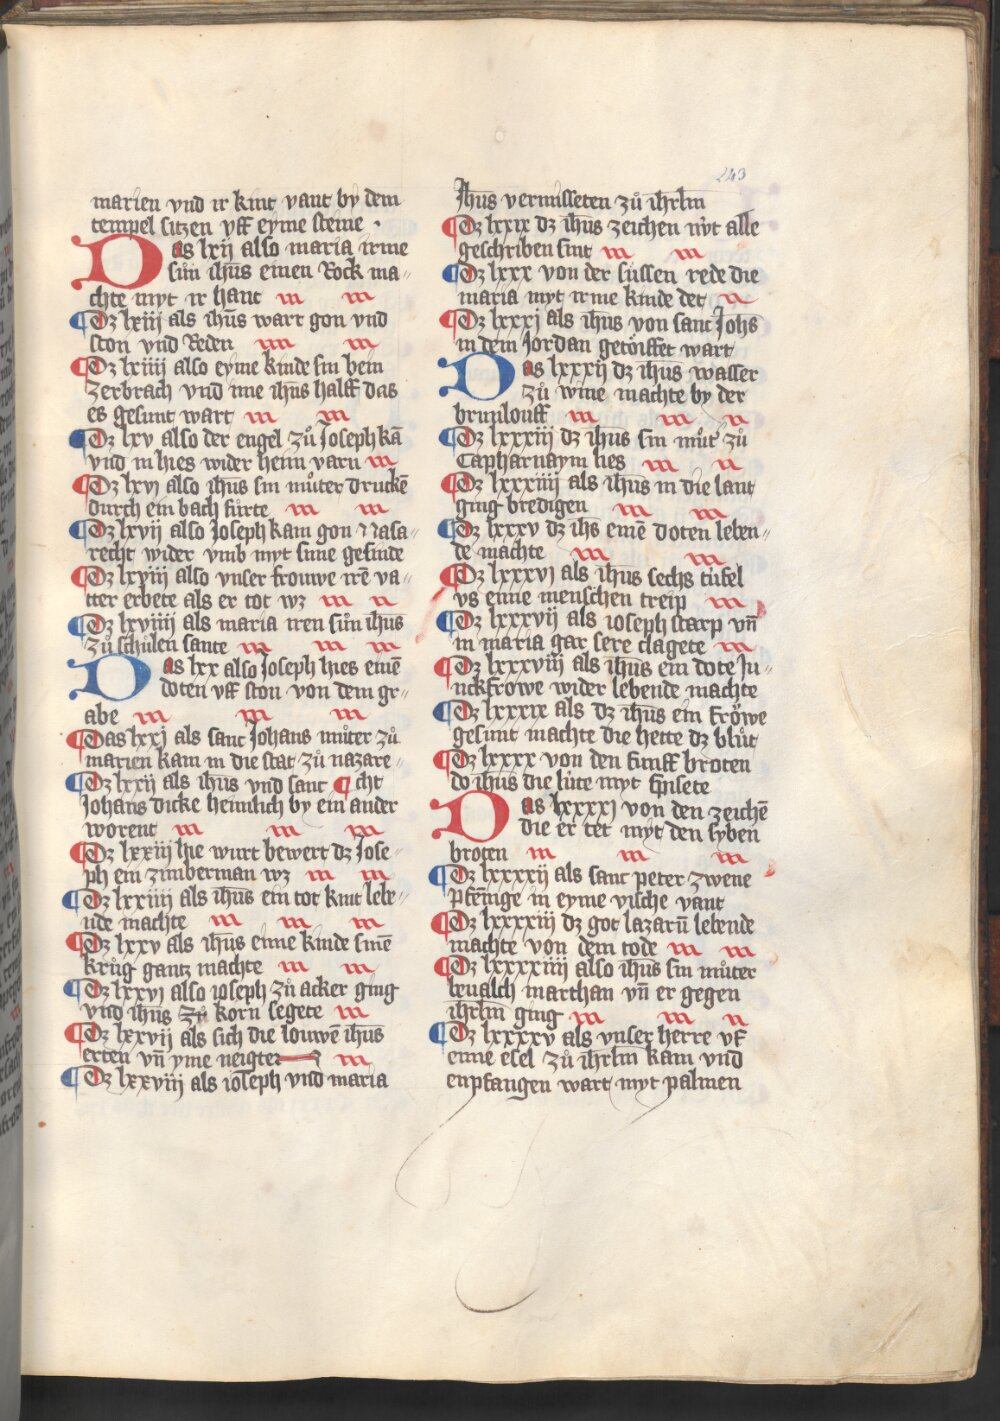 243
marien vnd ir kint vant by dem
tempel sitzen vff eyme steine ·
Das lxij also maria irme
sůn ihūs einen Rock ma-
chte myt ir hant
Dz lxiij als ihūs wart gon vnd
ston vnd Reden
Dz lxiiij also eyme kinde sin bein
zerbrach vnd ime ihūs halff das
es gesunt wart
Dz lxv also der engel zů Joseph kā
vnd in hies wider heim varn
Dz lxvj also ihūs sin můter druckē
durch ein bach fürte
Dz lxvij also Joseph kam gon Nasa-
recht wider vmb myt sime gesinde
Dz lxviij also vnser frouwe irē va-
tter erbete als er tot wz
Dz lxviiij als maria iren sůn ihūs
zů schůlen sante
Das lxx also Joseph hies einē
doten vff ston von dem gr-
abe
Das lxxj als sanc Johans můter zů
marien kam in die stat zů nazare-
Dz lxxij als ihūs vnd sanc cht
Johans dicke heimlich by ein ander
worent
Dz lxxiij hie wurt bewert dz Jose-
ph ein zimberman wz
Dz lxxiiij als ihūs ein tot kint lebe-
nde machte
Dz lxxv als ihūs eime kinde sinē
krůg gantz machte
Dz lxxvj also ioseph zů acker ging
vnd ihūs zů korn segete
Dz lxxvij als sich die louwē ihūs
erten vn̄ yme neigte
Dz lxxviij als ioseph vnd maria
Jhūs vermisseten zů ihrlm
Dz lxxix dz ihūs zeichen nyt alle
geschriben sint
Dz lxxx von der süssen rede die
maria myt irme kinde det
Dz lxxxj als ihūs von sanc Johs
in dem Jordan getöiffet wart
Das lxxxij dz ihūs wasser
zů wine machte by der
brunlouff
Dz lxxxiij dz ihūs sin můt zů
Capharnaym lies
Dz lxxxiiij als ihūs in die lant
ging bredigen
Dz lxxxv dz ihs einē doten leben-
de machte
Dz lxxxvj als ihūs sechs tüfel
vs eime menschen treip
Dz lxxxvij als ioseph starp vn̄
in maria gar sere clagete
Dz lxxxviij als ihūs ein dote Ju-
nckfrowe wider lebende machte
Dz lxxxix als dz ihūs ein fröwe
gesunt machte die hette dz blůt
Dz lxxxx von den fünff broten
do ihūs die lüte myt spisete
Das lxxxxj von den zeichē
die er tet myt den syben
broten
Dz lxxxxij als sanc peter zwene
pfēnige in eyme vische vant
Dz lxxxxiij dz got lazarū lebende
machte von dem tode
Dz lxxxxiiij also ihūs sin můter
beualch marthan vn̄ er gegen
ihrlm ging
Dz lxxxxv als vnser herre vf
eime esel zů ihrlm kam vnd
enpfangen wart myt palmen